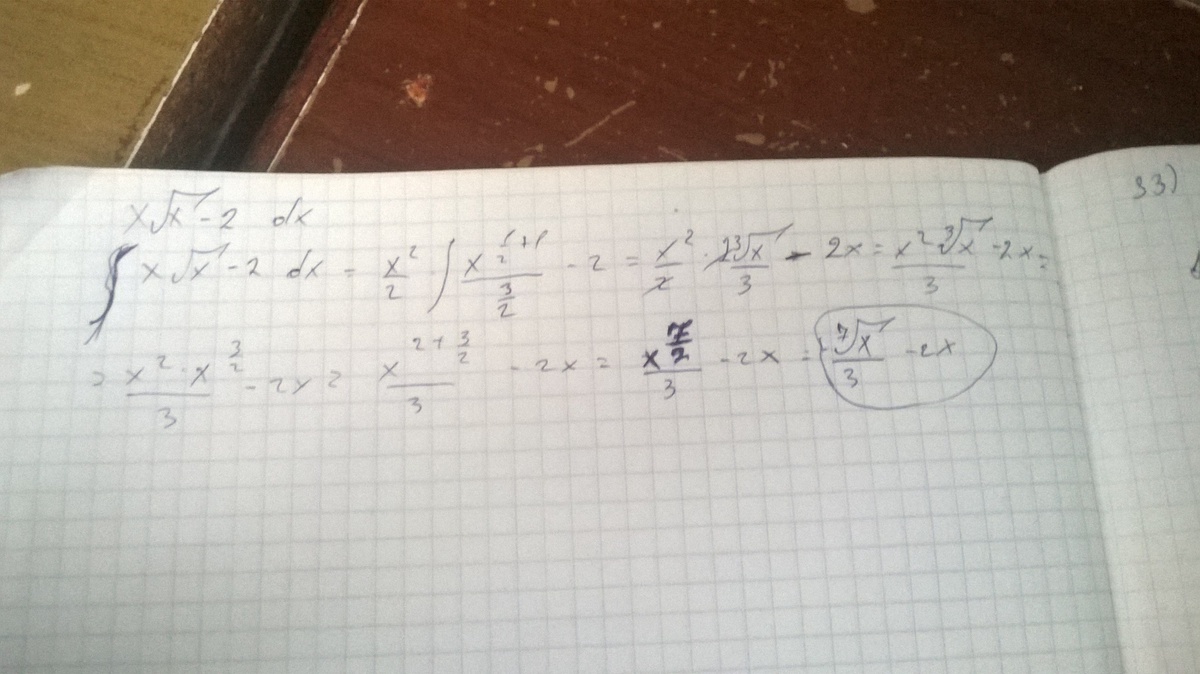 33)
x√x - 2 dx
∫ x√x - 2 dx = x²/2 ∫ x^(1/2+1)/(3/2) - 2 = x²/2 · 2∛x/3 - 2x = x²∛x/3 - 2x =
= x²·x^(3/2)/3 - 2x = x^(2+3/2)/3 - 2x = x^(7/2)/3 - 2x = ⁷√x/3 - 2x